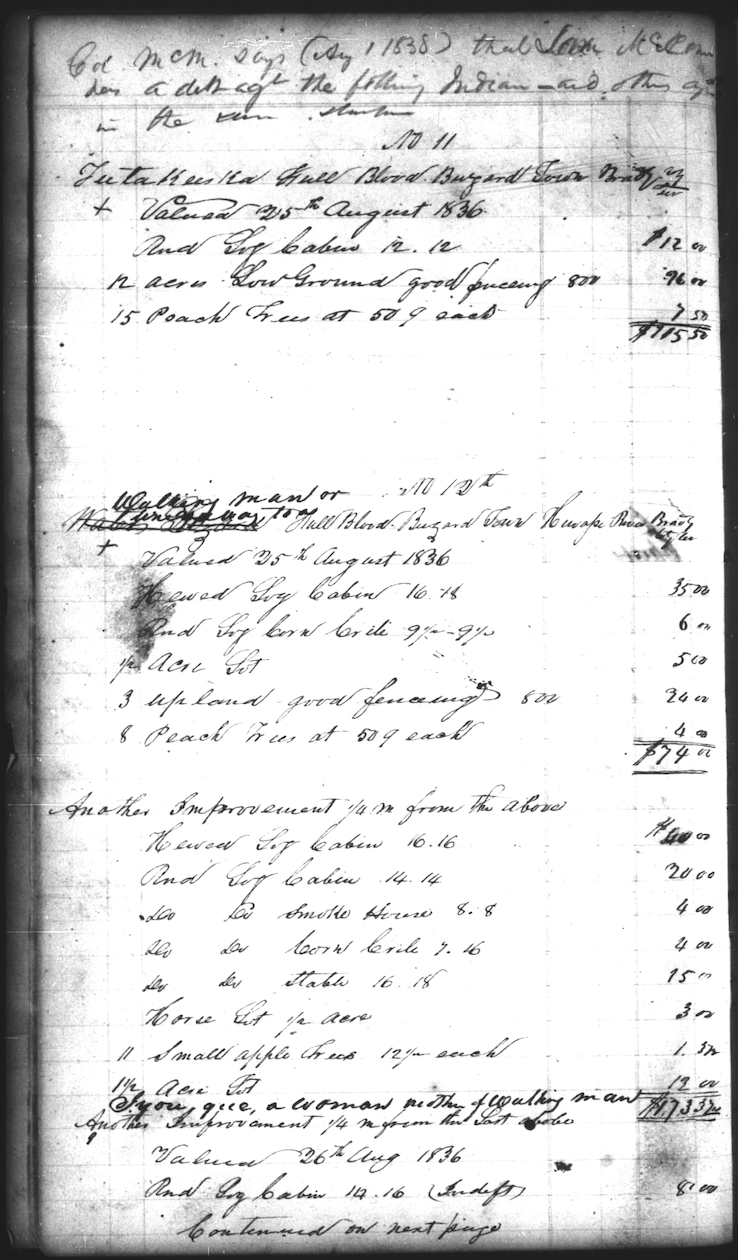 Col McM. says (Aug 1 1838) that
has a debt agt the following Indian and others
in the same
No 11
Full Blood Buzard Town
+ Valued 25th August 1836
Rnd Log Cabin 12.12 $12 00
12 acres Low Ground good fenceing 800 96 00
15 Peach Trees at 50 q each 7 50
$115 50
Walking man or No 12th
Full Blood Buzard Town River
+ Valued 25th August 1836
Hewed Log Cabin 16.18 35 00
Rnd Log Corn Crile 9½-9½ 6 00
½ Acre Lot 5 00
3 upland good fenceing 800 24 00
8 Peach Trees at 50 q each 4 00
$74 00
Another Improvement ¼ m from the above
Hewed Log Cabin 16.16 40 00
Rnd Log Cabin 14.14 20 00
Do Do Smoke House 8.8 4 00
Do Do Corn Crile 7.16 4 00
Do Do Stable 16.18 15 00
Horse Lot ½ acre 3 00
11 Small apple Trees 12½ each 1.37½
1½ Acre Lot 12 00
a woman mother of Walking man $173 37½
Another Improvement ¼ m from the Last above
Valued 26th Aug 1836
Rnd Log Cabin 14.16 (Indeft) 8 00
Continued on next page